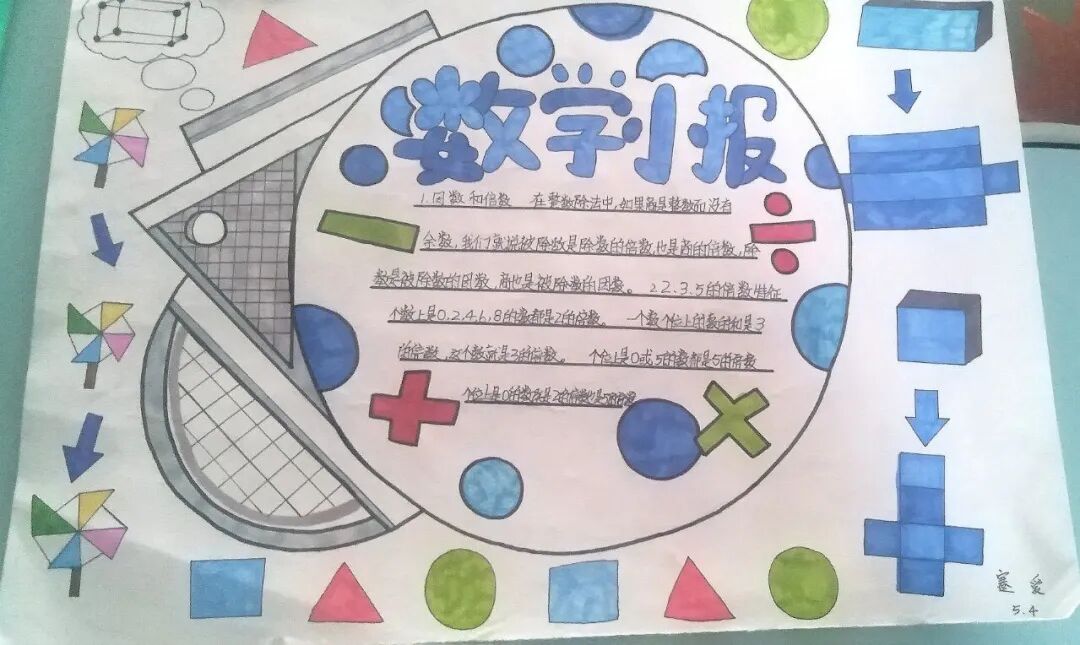 数学小报
1.因数和倍数 在整数除法中,如果商是整数而没有
余数,我们就说被除数是除数的倍数,也是商的倍数,除
数是被除数的因数,商也是被除数的因数。 2 2.3.5的倍数特征
个数上是0.2.4.6.8的数都是2的倍数。 一个数个位上的数字和是3
的倍数,这个数就是3的倍数。 个位上是0或5的数都是5的倍数
个位上是0的数既是2的倍数也是5的倍数
5.4